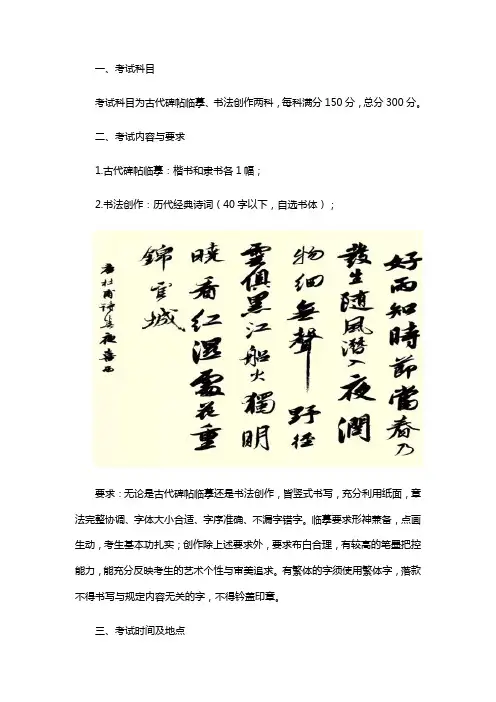 一、考试科目
考试科目为古代碑帖临摹、书法创作两科，每科满分150分，总分300分。
二、考试内容与要求
1.古代碑帖临摹：楷书和隶书各1幅；
2.书法创作：历代经典诗词（40字以下，自选书体）；
好雨知時節當春乃
發生随風潛入夜潤
物細無聲野徑
雲俱黑江船火獨明
曉看紅濕處花重
錦官城
杜甫詩春夜喜雨
要求：无论是古代碑帖临摹还是书法创作，皆竖式书写，充分利用纸面，章
法完整协调、字体大小合适、字序准确、不漏字错字。临摹要求形神兼备，点画
生动，考生基本功扎实；创作除上述要求外，要求布白合理，有较高的笔墨把控
能力，能充分反映考生的艺术个性与审美追求。有繁体的字须使用繁体字，落款
不得书写与规定内容无关的字，不得钤盖印章。
三、考试时间及地点